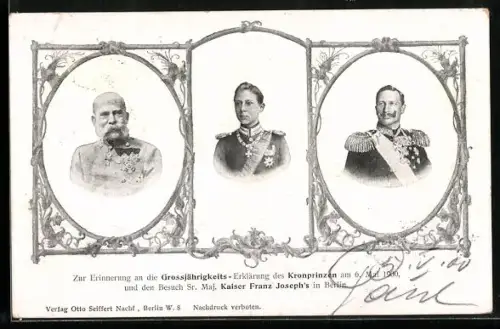 Zur Erinnerung an die Grossjährigkeits-Erklärung des Kronprinzen am 6. Mai 1900,
und den Besuch Sr. Maj. Kaiser Franz Joseph's in Berlin.
Verlag Otto Seiffert Nachf., Berlin W. 8 Nachdruck verboten.